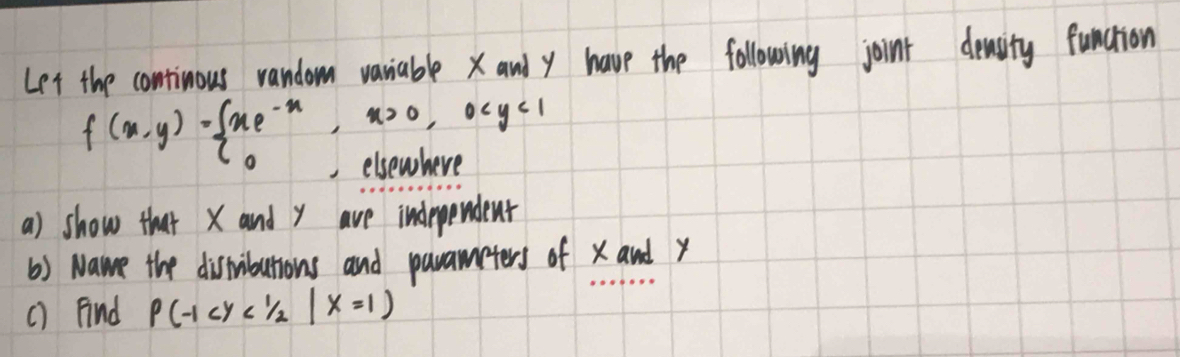 Let the continous random variable X and Y have the following joint density function
f(x,y) = { xe^-x , x>0, 0<y<1
0 , elsewhere
a) Show that X and Y are independent
b) Name the distributions and parameters of X and Y
c) Find P(-1<Y<1/2 | X=1)